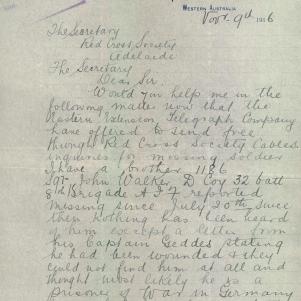 WESTERN AUSTRALIA
Nov. 9th 1916
The Secretary
Red Cross Society
Adelaide
The Secretary
Dear Sir.
Would you help me in the
following matter now that the
Eastern Extension Telegraph Company
have offered to send free
through Red Cross Society Cables
inquiries for missing soldier
I have a brother 1186
Sgt John Walker D Coy 32 batt
8th Brigade A I F reported
missing since July 20th since
then nothing has been heard
of him except a letter from
his Captain Geddes stating
he had been wounded & they
could not find him at all and
thought most likely he is a
prisoner of War in Germany